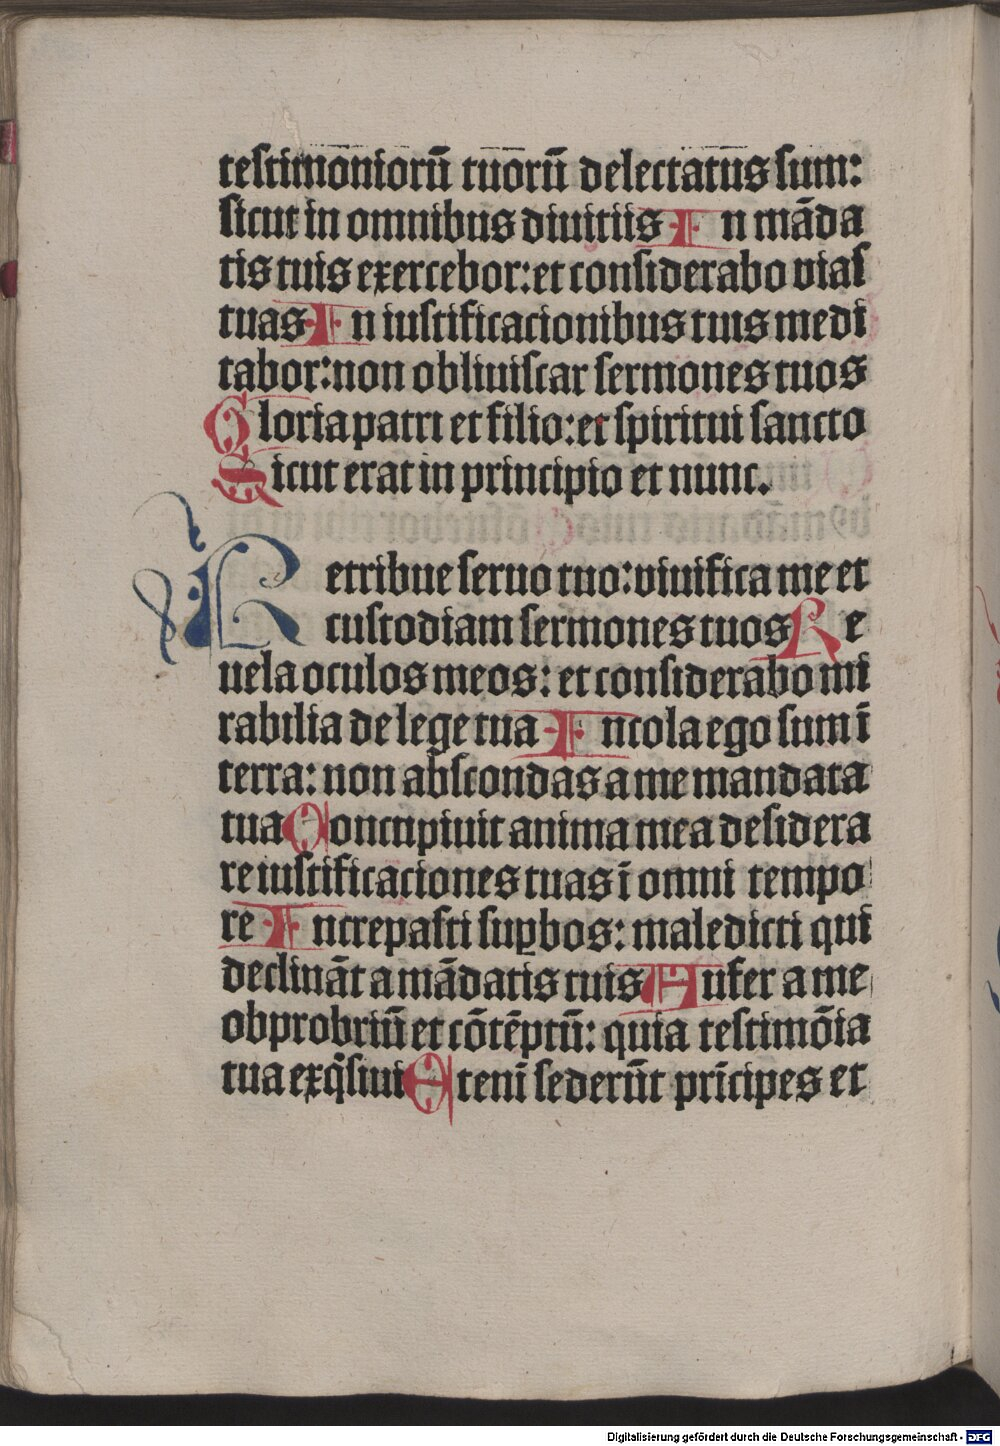 testimoniorū tuorū delectatus sum:
sicut in omnibus diuitiis In māda
tis tuis exercebor: et considerabo vias
tuas In iustificacionibus tuis medi
tabor: non obliuiscar sermones tuos
Gloria patri et filio: et spiritui sancto
Sicut erat in principio et nunc.
Retribue seruo tuo: viuifica me et
custodiam sermones tuos Re
uela oculos meos: et considerabo mi
rabilia de lege tua Incola ego sum ī
terra: non abscondas a me mandata
tua Concupiuit anima mea desidera
re iustificaciones tuas ī omni tempo
re Increpasti suꝑbos: maledicti qui
declināt a mādatis tuis Aufer a me
obprobriū et cōtēptū: quia testimōia
tua exq̄siui Etenī sederūt prīcipes et
Digitalisierung gefördert durch die Deutsche Forschungsgemeinschaft - DFG